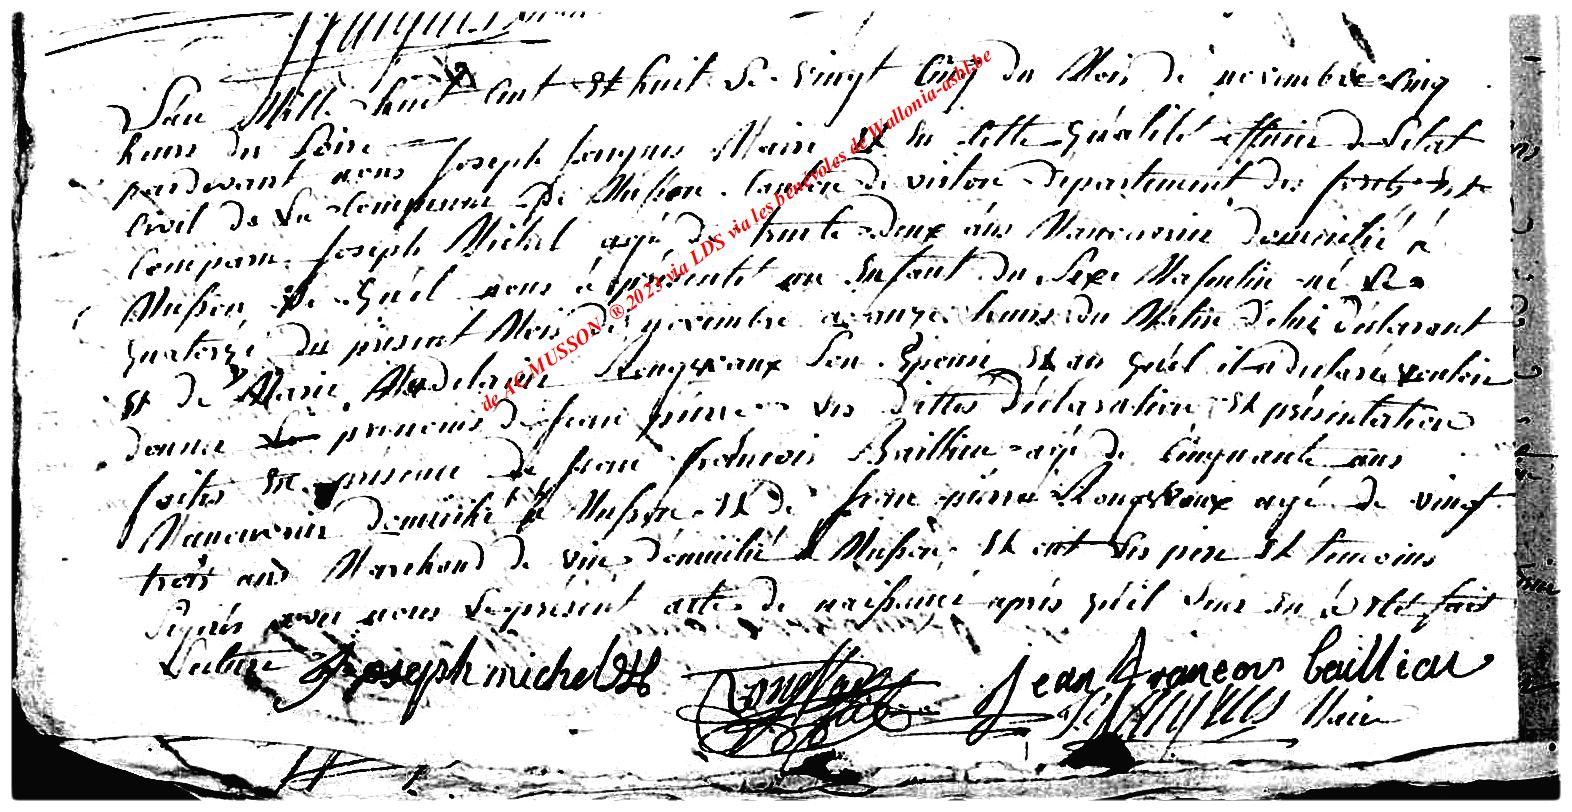 L'an Mille huit Cent Et huit Le vingt Cinq du Mois de novembre Cinq
heures du Soire
pardevant nous Joseph Jacques Maire Et En Cette qualité officier de L'etat
Civil de La Commune De Musson. Canton de virton département des forets Est
Comparu Joseph Michel agé de trente deux ans Manoeuvrier domicilié à
Musson Le quel nous à présenté un Enfant du Sexe Masculin né Le
quatorze du présent Mois de novembre a onze heures du Matin de lui déclarant
Et de Marie Madelaine Rongvaux Son Epouse Et au quel il a déclaré vouloir
donner Les prenoms de Jean pierre Les dittes déclaration Et présentation
faites En présence de Jean francois Baillieu agé de Cinquante ans
Manoeuvrier domicilié à Musson Et de Jean pierre Rongvaux agé de vingt
trois ans Marchand de vin domicilié à Musson Et ont Les pere Et temoins
Signés avec nous Le présent acte de naissance après qu'il Leur En à Eté fait
Lecture Joseph michel Jean francois bailliau
Jacques Maire
de AC MUSSON ® 2023 via LDS via les bénévoles de Wallonia-asbl.be